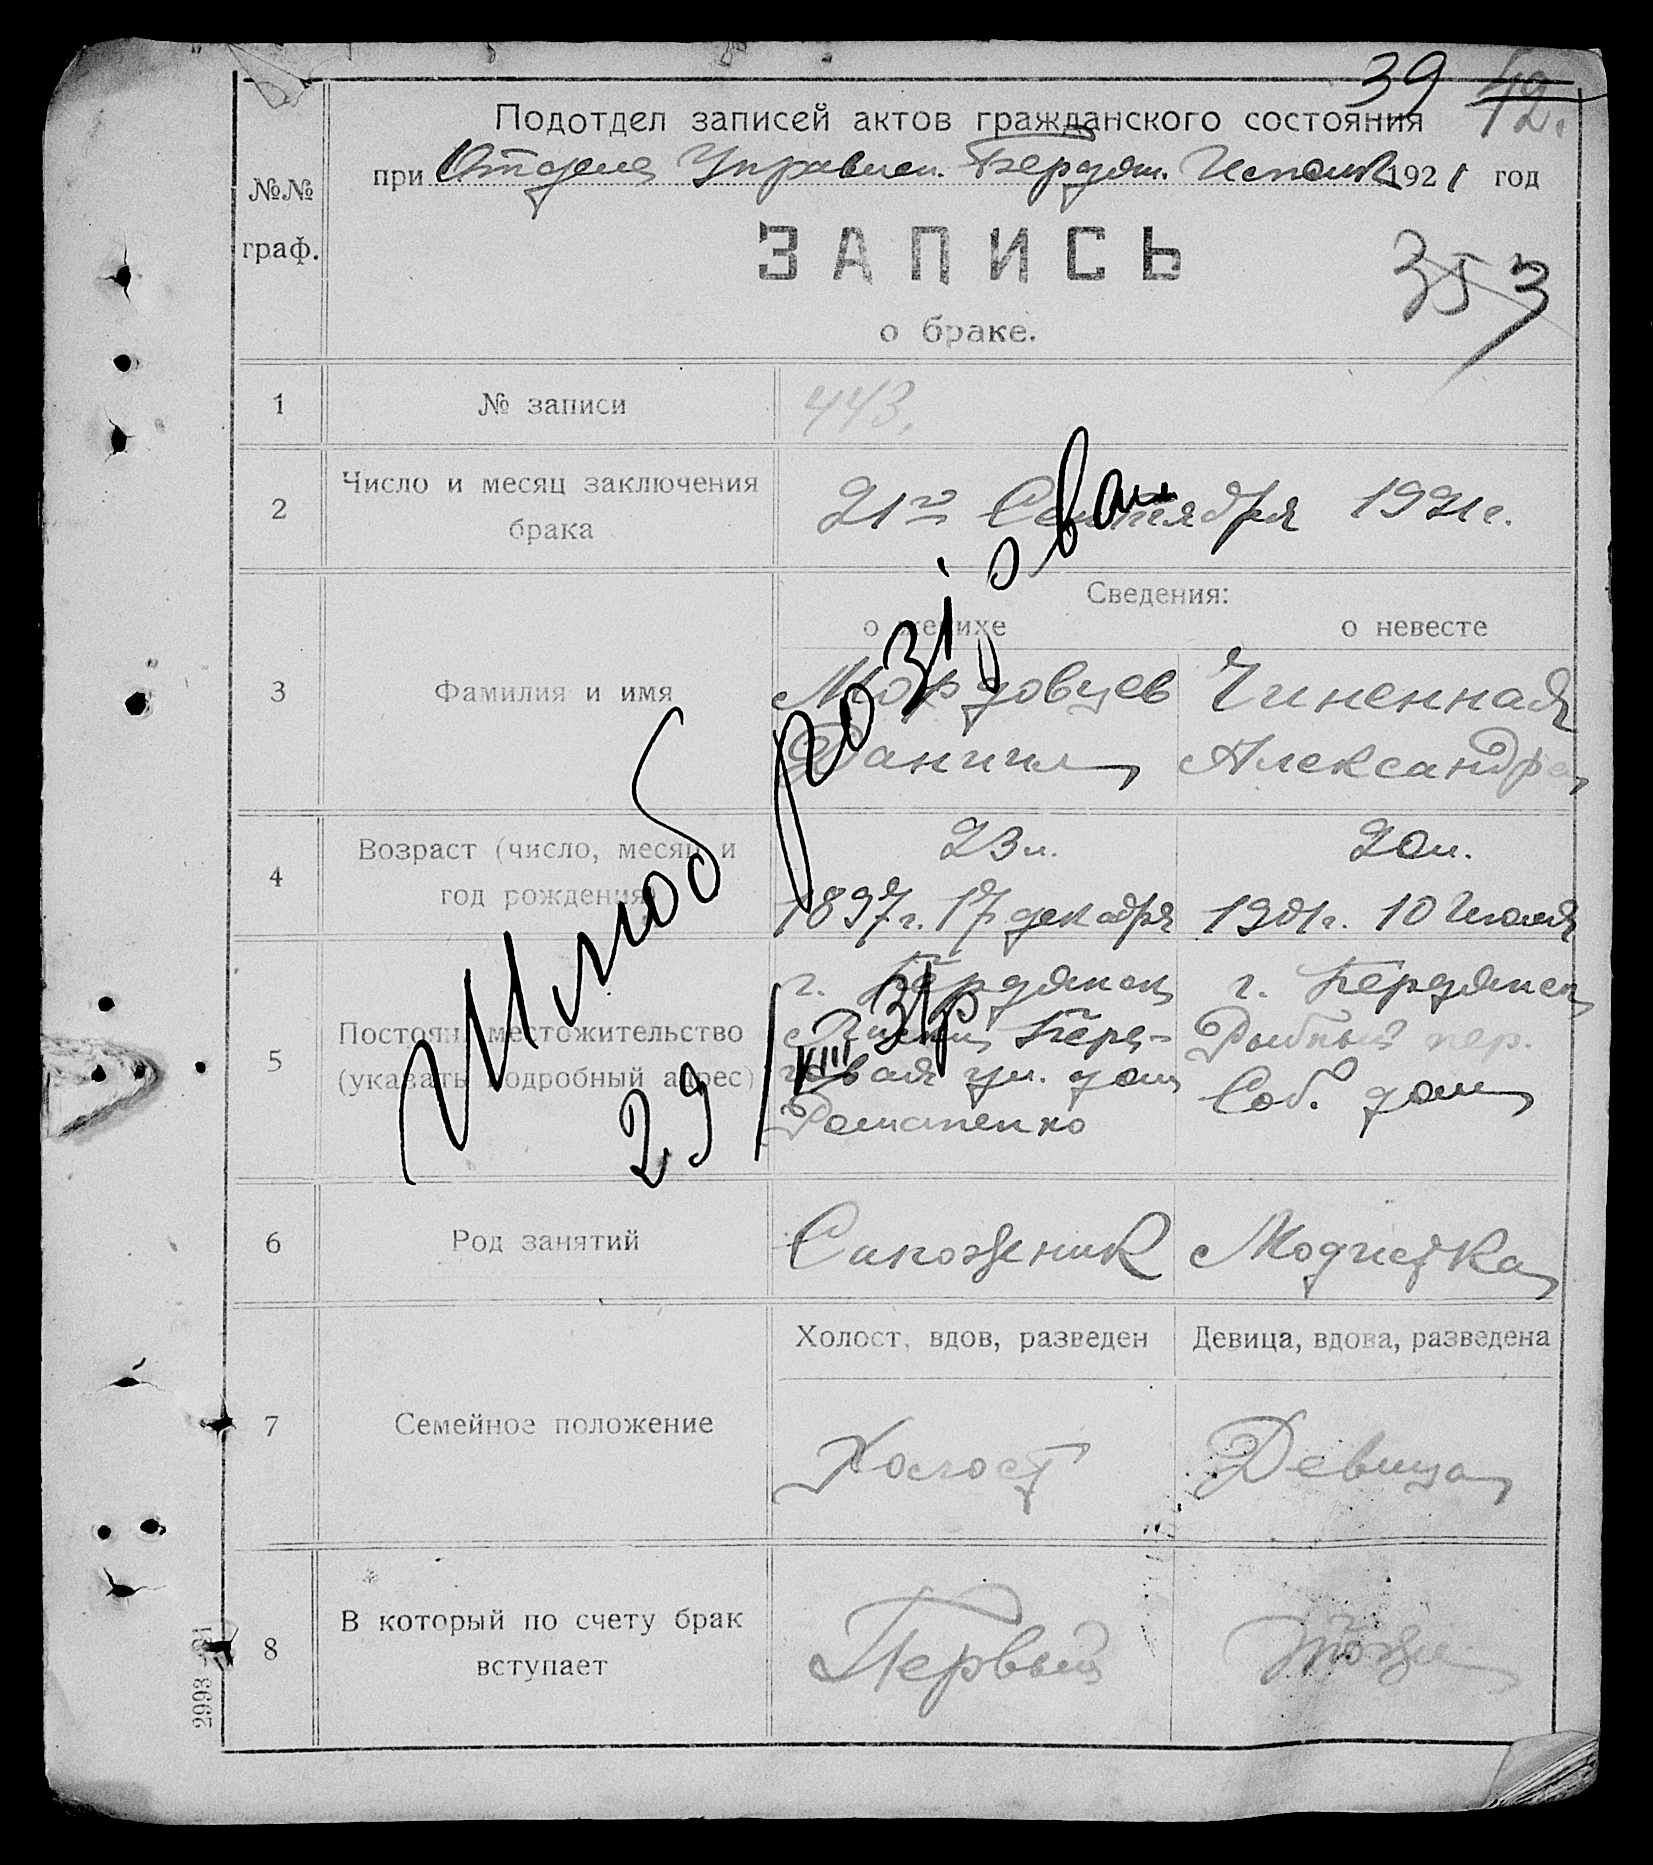 39 42.
Подотдел записей актов гражданского состояния
при Отделе Управлен. Бердян. Исполк 1921 год
№№
граф.
ЗАПИСЬ
353
о браке.
1 № записи 443.
2 Число и месяц заключения
брака
21го Сентября 1921г.
Сведения:
о женихе о невесте
3 Фамилия и имя
Мордовцев Чиненная
Даниил Александра
4 Возраст (число, месяц и
год рождения)
23 л. 20 л.
1897г. 17 декабря 1901г. 10 Июля
5 Постоян. местожительство
(указать подробный адрес)
г. Бердянск г. Бердянск
Бере- Рыбный пер.
говая ул. дом Соб. дом
Романенко
Шлюб розірван
29/VIII 31р
6 Род занятий Сапожник Модистка
Холост, вдов, разведен Девица, вдова, разведена
7 Семейное положение Холост Девица
8 В который по счету брак
вступает
Первый тоже
2993—21